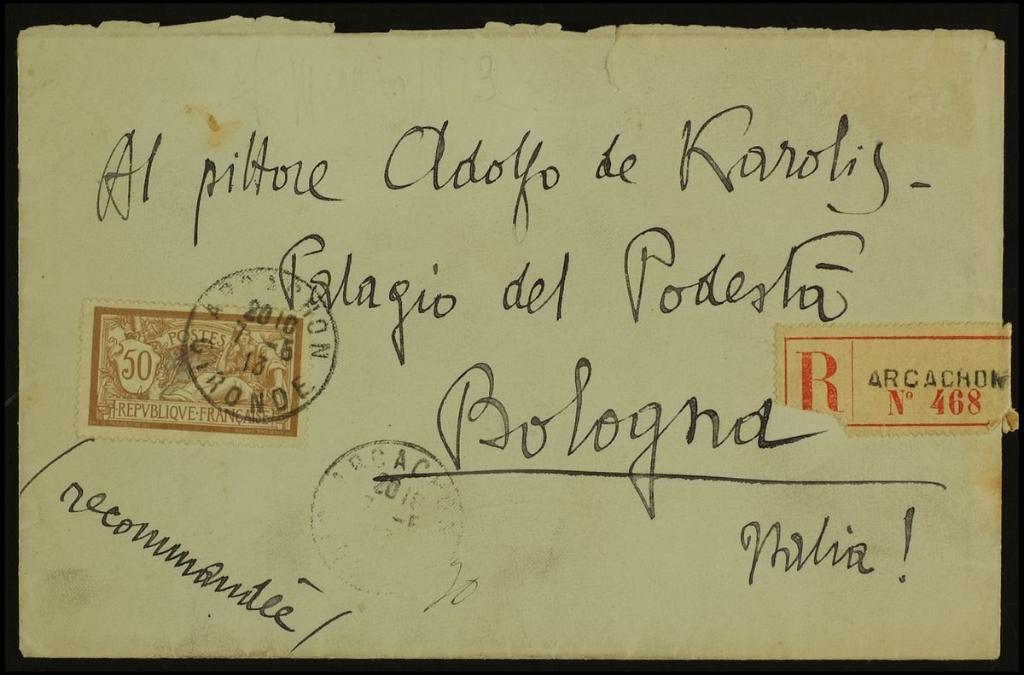 Al pittore Adolfo de Karolis -
Palagio del Podestà
Bologna
Italia!
(recommandée)
ARCACHON
20 10
7 - 5
13
GIRONDE
50
POSTES
REPVBLIQVE FRANÇAISE
R
ARCACHON
N° 468
ARCACHON